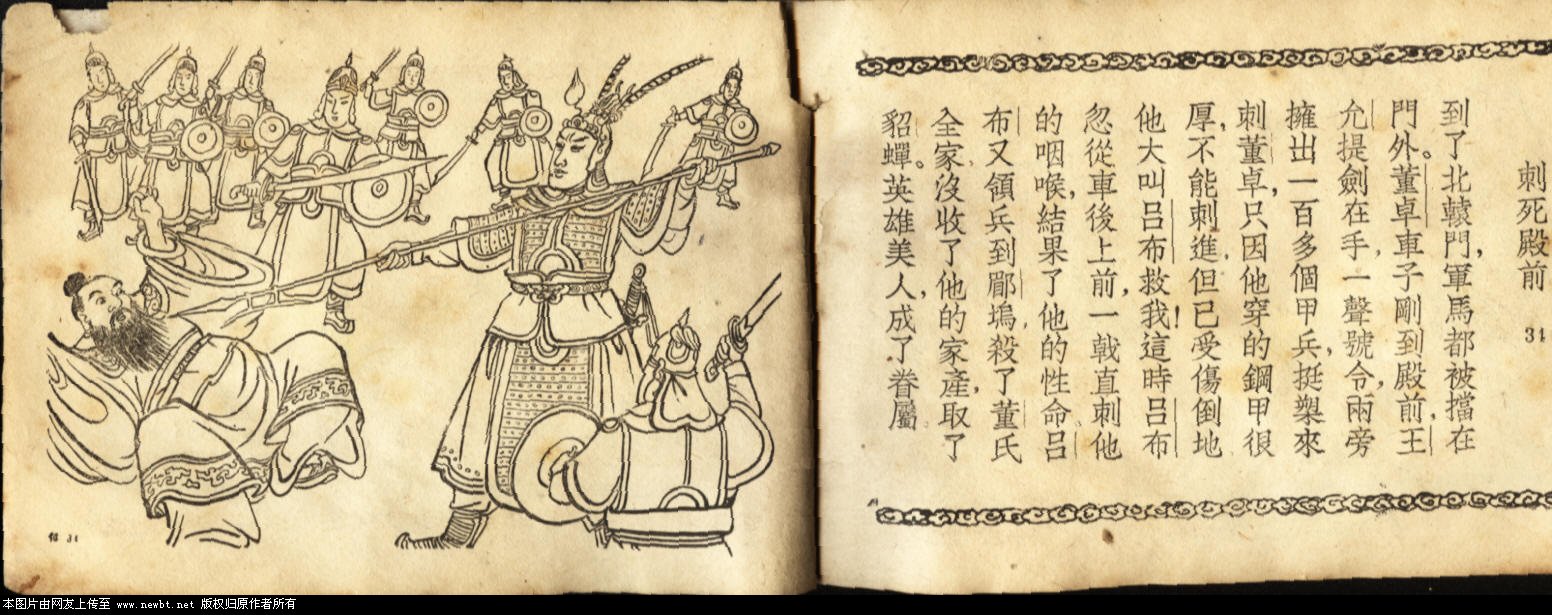 刺死殿前 31
到了北轅門，軍馬都被擋在
門外。董卓車子剛到殿前，王
允提劍在手，一聲號令，兩旁
擁出一百多個甲兵，挺槊來
刺董卓，只因他穿的鋼甲很
厚，不能刺進，但已受傷倒地
他大叫呂布救我！這時呂布
忽從車後上前，一戟直刺他
的咽喉，結果了他的性命。呂
布又領兵到郿塢，殺了董氏
全家，沒收了他的家產，取了
貂蟬。英雄美人，成了眷屬。
31
本图片由网友上传至 www.newbt.net 版权归原作者所有